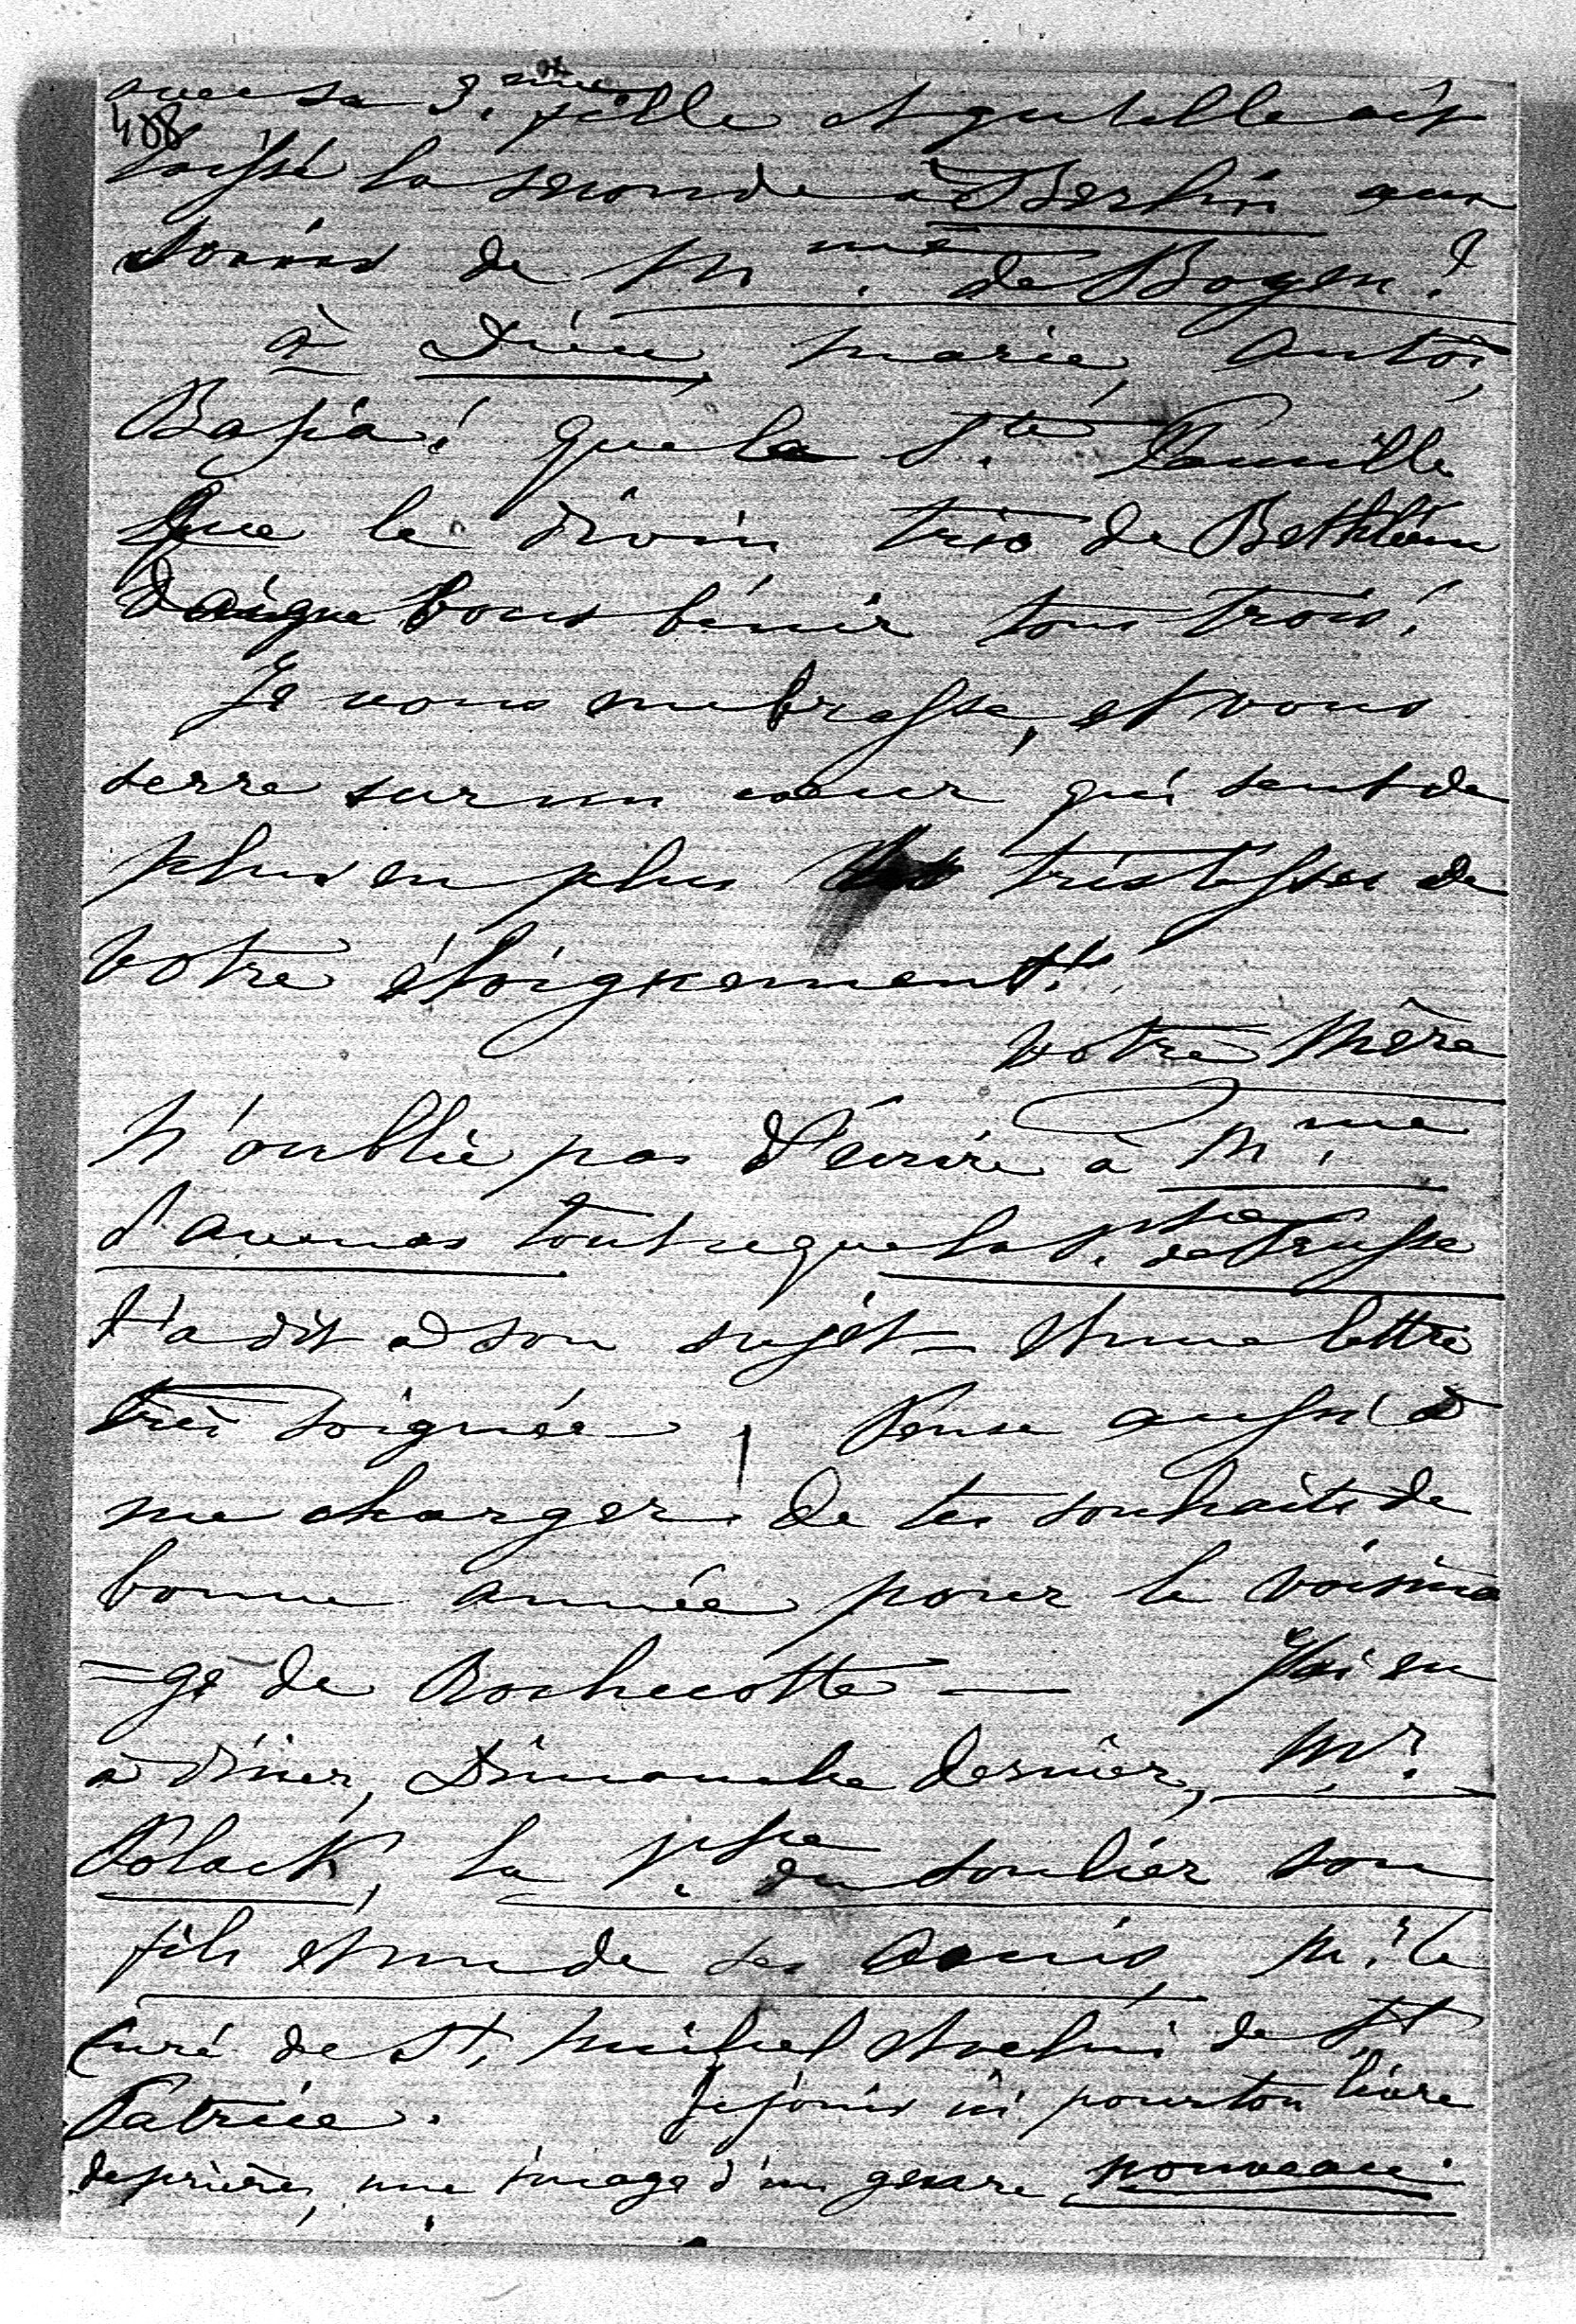 avec sa 3.me fille et qu'elle ait
488
laissé la seconde à Berlin aux
soins de Mme. de Boyen?
à Dieu, Marie, Antoi,
Bapia! que la Ste. Famille
que le divin trio de Bethléem
daigne vous bénir tous trois!
Je vous embrasse, et vous
serre sur un cœur qui sent de
plus en plus les tristesses de
votre éloignement!
votre Mère
N'oublie pas d'écrire à Mme
d'avenas tout ce que la Psse. de Prusse
t'a dit à son sujet — et une lettre
très soignée — Pense aussi à
me charger de tes souhaits de
bonne année pour le voisina
=ge de Rochecotte — J'ai eu
à diner, Dimanche dernier, Mr.
Polack, la Vsse. du Soulier son
fils et un de ses amis, Mr. le
Curé de St. Michel et celui de St
Patrice. Je joins ici pour ton livre
de prières, une image d'un genre nouveau.